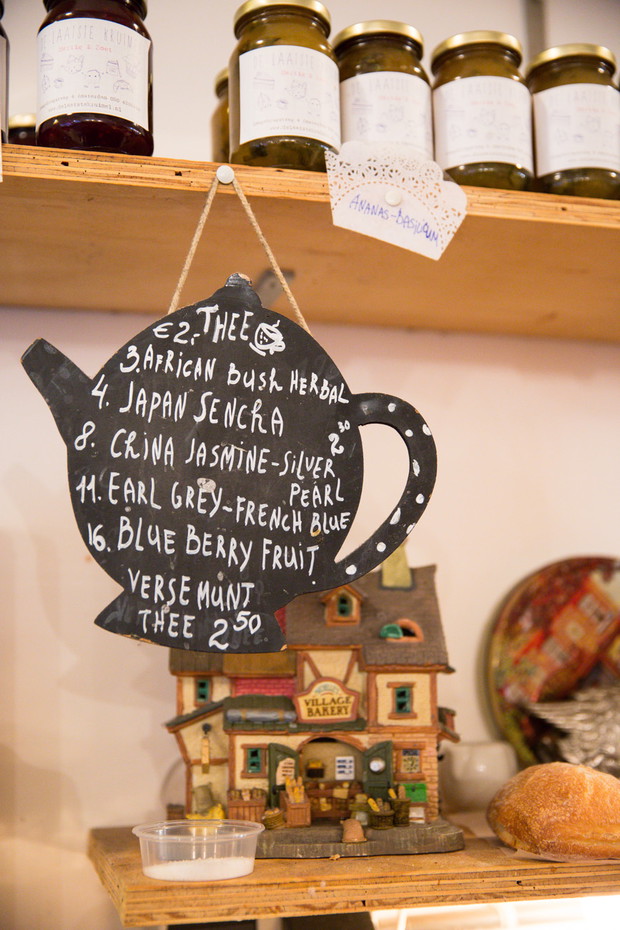 DE LAATSTE KRUIM
ANANAS-BASILICUM
€2,- THEE
3. AFRICAN BUSH HERBAL
4. JAPAN SENCHA
2 30
8. CHINA JASMINE-SILVER
PEARL
11. EARL GREY-FRENCH BLUE
16. BLUE BERRY FRUIT
VERSE MUNT
THEE 2 50
VILLAGE
BAKERY